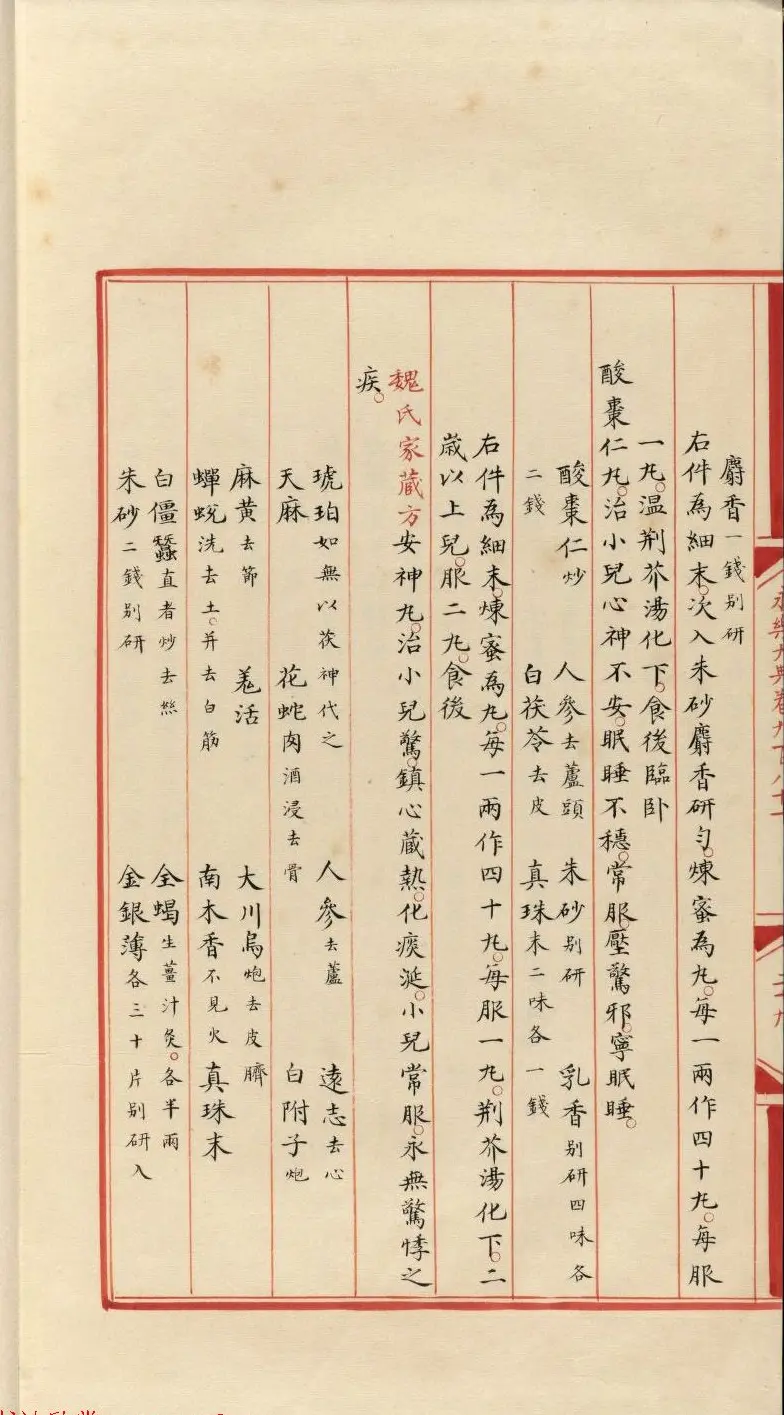 永樂大典卷九百八十一
二十九
麝香一錢别研
右件為細末。次入朱砂麝香研勻。煉蜜為丸。每一兩作四十丸。每服
一丸。温荆芥湯化下。食後臨卧
酸棗仁丸。治小兒心神不安。眠睡不穩。常服。壓驚邪。寧眠睡。
酸棗仁炒 人參去蘆頭 朱砂别研 乳香别研四味各
二錢 白茯苓去皮 真珠末二味各一錢
右件為細末。煉蜜為丸。每一兩作四十丸。每服一丸。荆芥湯化下。二
歲以上兒。服二丸。食後
魏氏家藏方安神丸。治小兒驚。鎮心藏熱。化痰涎。小兒常服。永無驚悸之
疾。
琥珀如無以茯神代之 人參去蘆 遠志去心
天麻 花蛇肉酒浸去骨 白附子炮
麻黄去節 羌活 大川烏炮去皮臍
蟬蜕洗去土。并去白筋 南木香不見火 真珠末
白僵蠶直者炒去絲 全蝎生薑汁炙。各半兩
朱砂二錢别研 金銀薄各三十片别研入